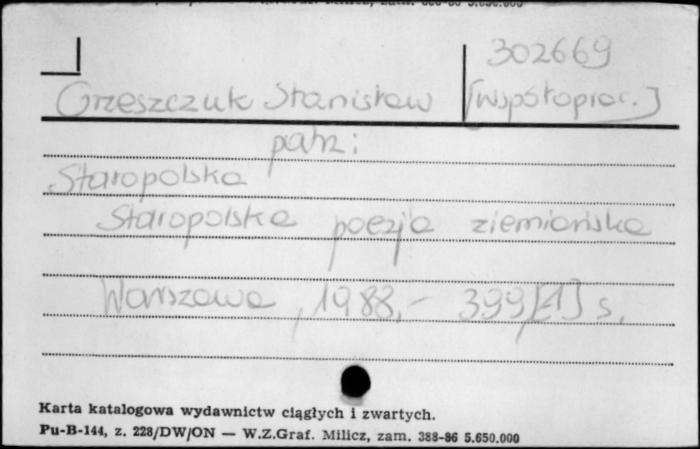 302669
Grzeszczuk Stanisław [współoprac.]
patrz:
Staropolska
Staropolska poezja ziemiańska
Warszawa, 1988.- 399[1] s.
Karta katalogowa wydawnictw ciągłych i zwartych.
Pu-B-144, z. 228/DW/ON — W.Z.Graf. Milicz, zam. 388-86 5.650.000